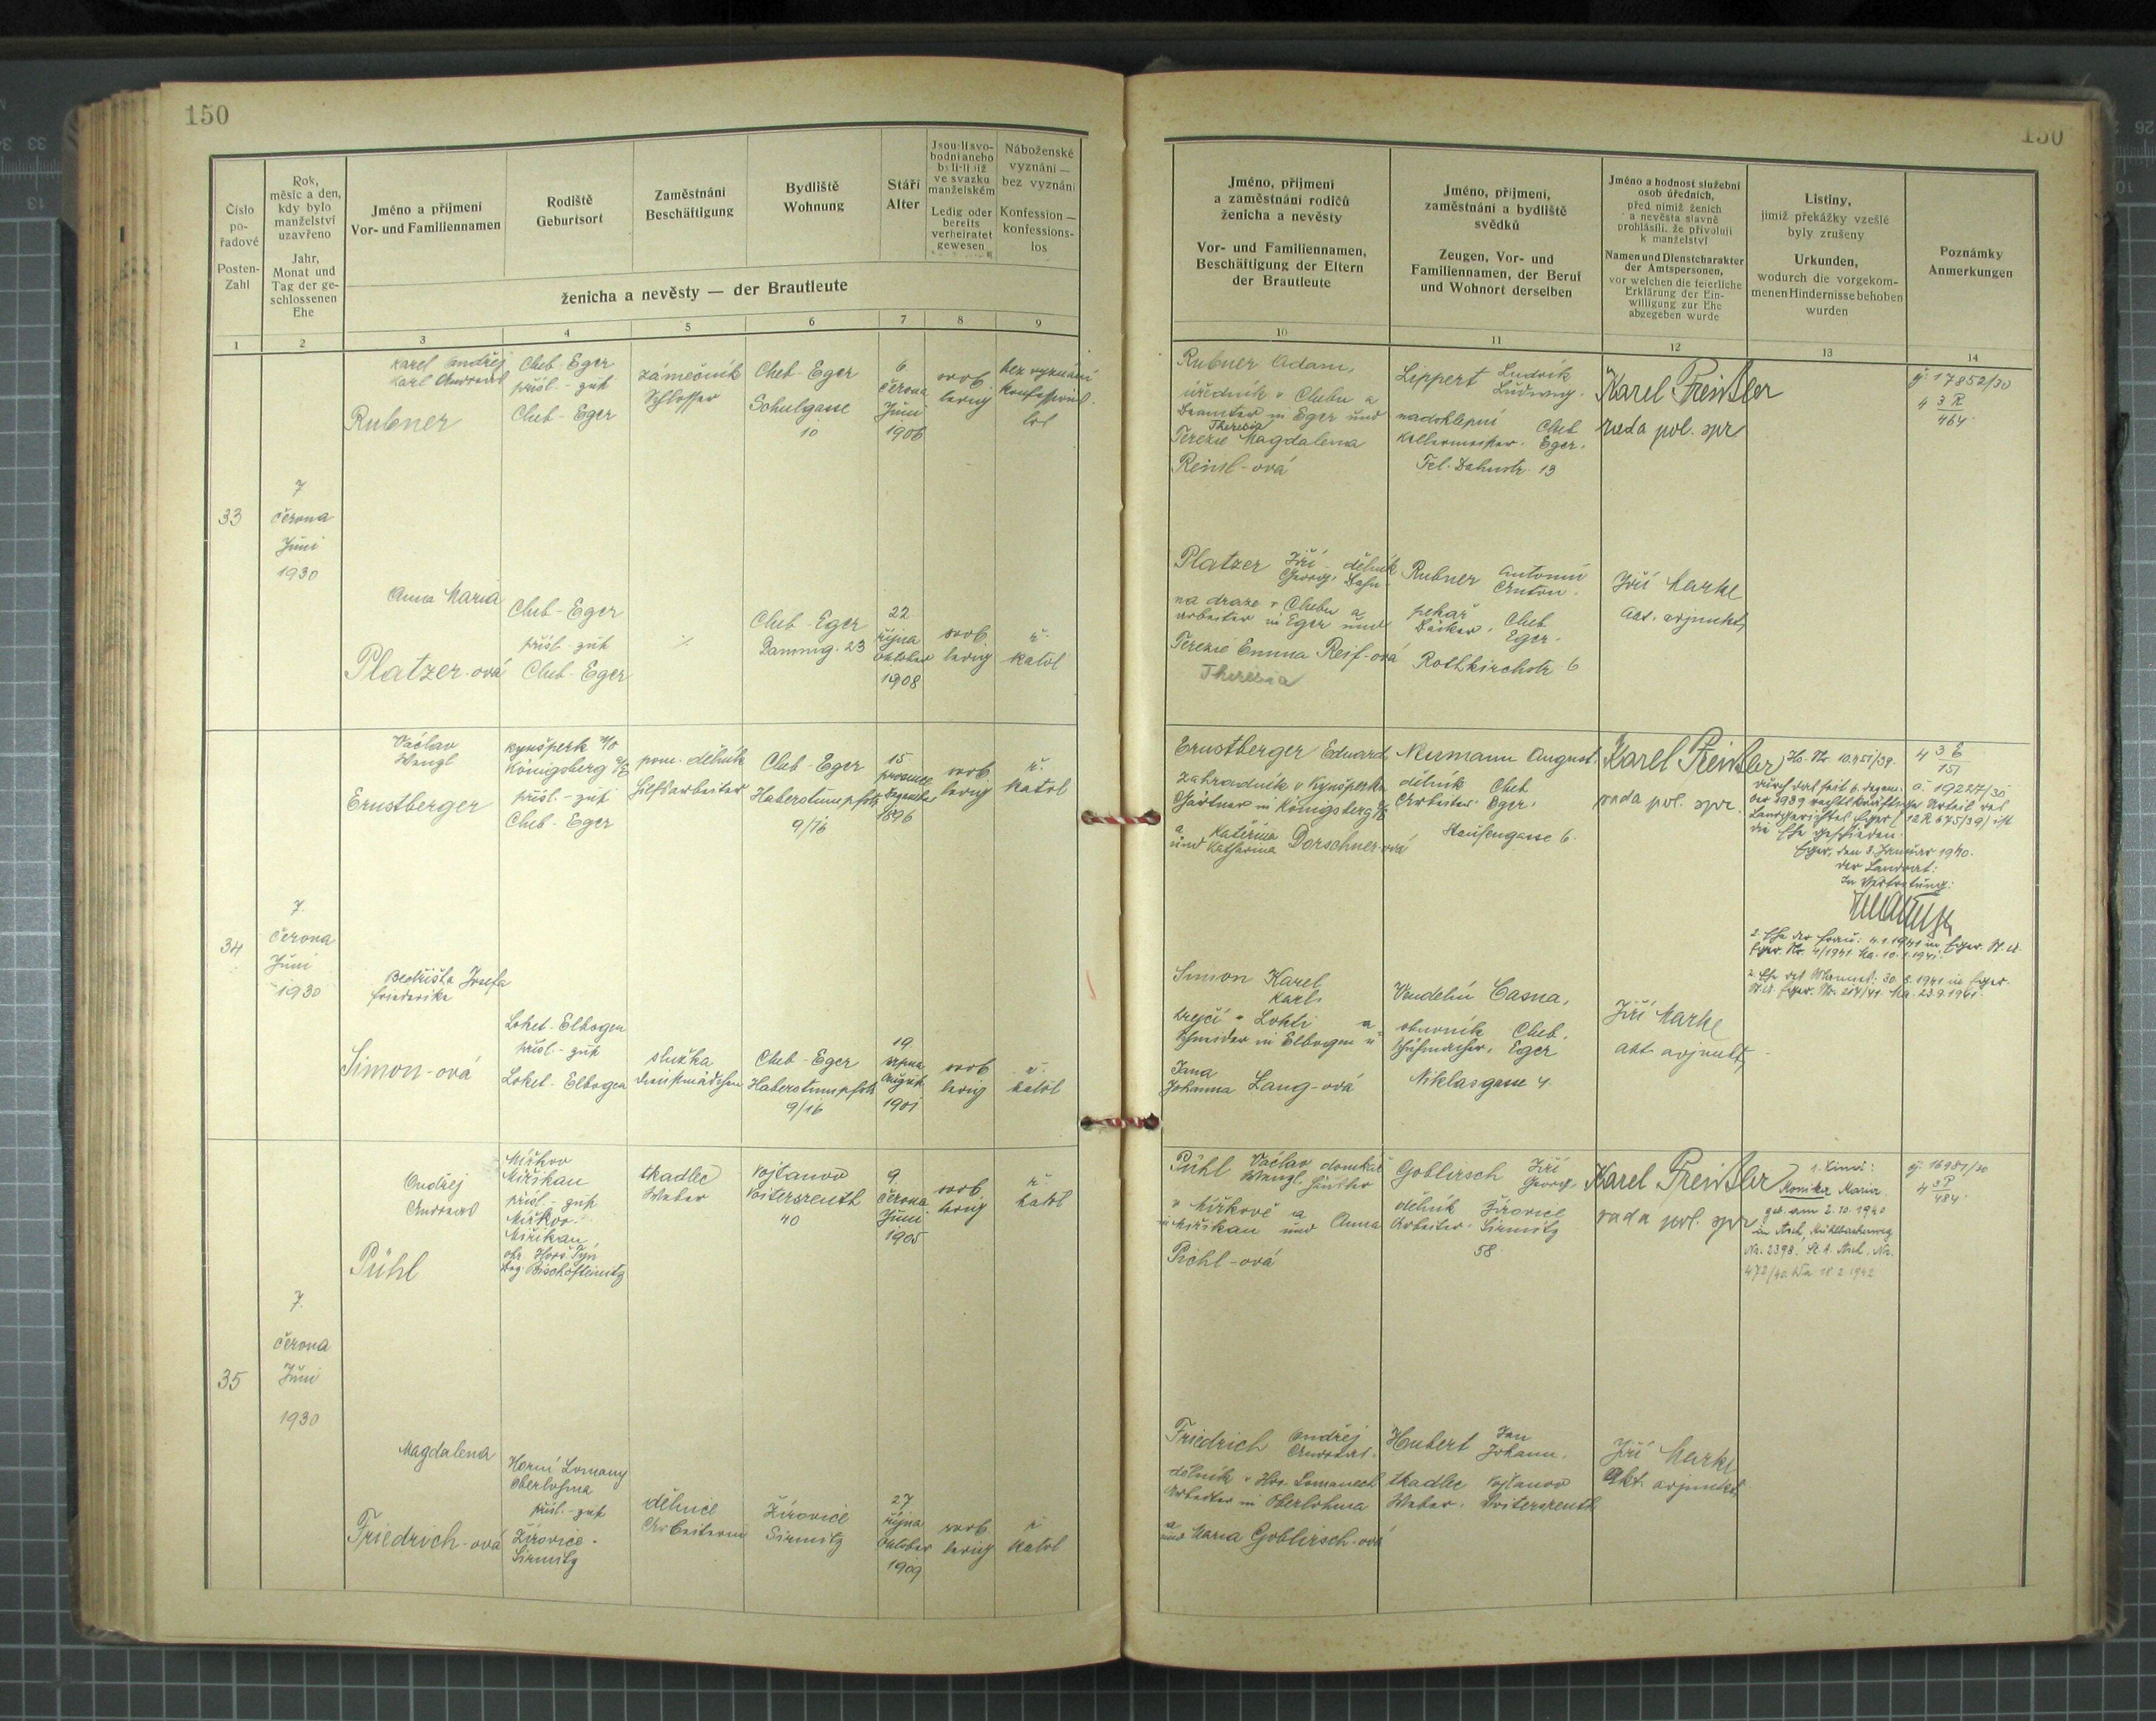 150
Číslo
po-
řadové
Posten-
Zahl
Rok,
měsíc a den,
kdy bylo
manželství
uzavřeno
Jahr,
Monat und
Tag der ge-
schlossenen
Ehe
Jméno a příjmení
Vor- und Familiennamen
Rodiště
Geburtsort
Zaměstnání
Beschäftigung
Bydliště
Wohnung
Stáří
Alter
Jsou-li svo-
bodni aneb
byli-li již
ve svazku
manželském
Ledig oder
bereits
verheiratet
gewesen
Náboženské
vyznání —
bez vyznání
Konfession —
konfessions-
los
ženicha a nevěsty — der Brautleute
1 2 3 4 5 6 7 8 9
33
7
června
Juni
1930
Karel Ondřej
Karl Andreas
Rubner
Cheb-Eger
přísl. - zust
Cheb-Eger
zámečník
Schlosser
Cheb-Eger
Schulgasse
10
6
června
Juni
1906
svob.
ledig
bez vyznání
konfessions-
los
Anna Maria
Platzer-ová
Cheb-Eger
přísl. - zust
Cheb-Eger
Cheb-Eger
22
října
Oktober
1908
svob.
ledig
ř.
katol
34
7.
června
Juni
1930
Václav
Wenzl
Ernstberger
Kynšperk n/O
Königsberg a/E
přísl. - zust
Cheb-Eger
pom. dělník
Hilfsarbeiter
Cheb-Eger
Haberstumpfstr.
9/16
15
prosince
Dezember
1896
svob.
ledig
ř.
katol
Bedřiška Josefa
Friederike
Simon-ová
Loket-Elbogen
přísl. - zust
Loket-Elbogen
služka
Dienstmädchen
Cheb-Eger
Haberstumpfstr.
9/16
19
srpna
August
1901
svob.
ledig
ř.
katol
35
7.
června
Juni
1930
Ondřej
Andreas
Pühl
Mířkov
Miřikau
přísl. - zust
Mířkov
Miřikau
okr. Horš. Týn
Bez. Bischofteinitz
tkadlec
Weber
Vojtanov
Voitersreuth
40
9.
června
Juni
1905
svob.
ledig
ř.
katol
Magdalena
Friedrich-ová
Horní Lomany
Oberlohma
přísl. - zust
Žírovice
Sirmitz
dělnice
Arbeiterin
Žírovice
Sirmitz
27
října
Oktober
1909
svob.
ledig
ř
katol
150
Jméno, příjmení
a zaměstnání rodičů
ženicha a nevěsty
Vor- und Familiennamen,
Beschäftigung der Eltern
der Brautleute
Jméno, příjmení,
zaměstnání a bydliště
svědků
Zeugen, Vor- und
Familiennamen, der Beruf
und Wohnort derselben
Jméno a hodnost služební
osob úředních,
před nimiž ženich
a nevěsta slavně
prohlásili, že přivolují
k manželství
Namen und Dienstcharakter
der Amtspersonen,
vor welchen die feierliche
Erklärung der Ein-
willigung zur Ehe
abgegeben wurde
Listiny,
jimiž překážky vzešlé
byly zrušeny
Urkunden,
wodurch die vorgekom-
menen Hindernisse behoben
wurden
Poznámky
Anmerkungen
10 11 12 13 14
Rubner Adam,
úředník v Chebu a
Beamter in Eger und
Theresia
Terezie Magdalena
Reinl-ová
Lippert Ludvík
Ludwig.
nadsklepní Cheb
Kellermeister. Eger.
13
Karel
rada pol. spr
17852/30
4 3 R
464
Platzer Jiří - dělník
Georg, Bahn-
na dráze v Chebu a
arbeiter in Eger und
Terezie Emma Reif-ová
Theresia
Rubner Antonín
Anton.
pekař Cheb
Bäcker. Eger.
Rothkirchstr 6
Jiří Markl
akt. adjunkt
Ernstberger Eduard
zahradník v Kynšperku
Gärtner in Königsberg a/E
a Kateřina
und Katharina Dorschner-ová
Neumann August.
dělník Cheb
Arbeiter. Eger.
Staufengasse 6.
Karel
rada pol. spr.
durch das seit 6. Dezem-
ber 1939 rechtskräftige Urteil des
Landgerichtes Eger (12 R 675/39) ist
die Ehe geschieden.
Eger, den 3. Januar 1940.
Der Landrat:
In Vertretung:
2. Ehe der Frau: 4.1.1941 in Eger St. A.
Eger Nr. 4/1941
2. Ehe des Mannes: 30.8.1941 in Eger
St. A. Eger. Nr. 214/41
4 3 E
151
19227/30
Simon Karel
Karl,
krejčí v Lokti a
Schneider in Elbogen u
Jana
Johanna Lang-ová
obuvník Cheb.
Schuhmacher. Eger
Niklasgasse 4.
Jiří Markl
akt. adjunkt
Pühl Václav domkař
Wenzl, Häusler
v Mířkově a
in Miřikau und Anna
Pichl-ová
Goblirsch Jiří
Georg.
dělník Žírovice
Arbeiter. Sirmitz
58
Karel
rada pol. spr
1. Kind:
Monika Maria
geb. am 2.10.1940
in Asch,
Nr. 2398. St. A. Asch, Nr.
472/40. 18.2.1942
16981/30
4 3 P
484
Friedrich Ondřej
Andreas.
dělník v Hor. Lomanech
Arbeiter in Oberlohma
a
und Maria Goblirsch-ová
Hubert Jan
Johann.
tkadlec Vojtanov
Weber. Voitersreuth
Jiří Markl
akt. adjunkt